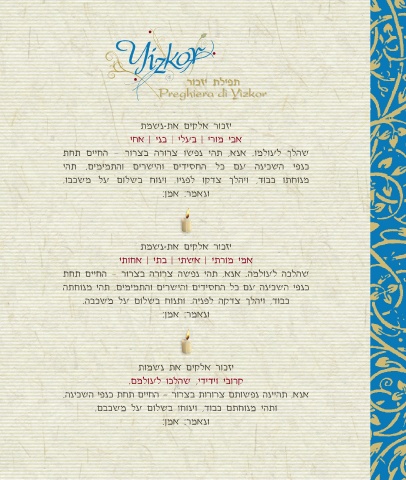 Yizkor
תפילת יזכור
Preghiera di Yizkor
יזכור אלקים את-נשמת
אבי מורי | בעלי | בני | אחי
שהלך לעולמו. אנא, תהי נפשו צרורה בצרור - החיים תחת
כנפי השכינה עם כל החסידים והישרים והתמימים, תהי
מנוחתו כבוד, ויהלך צדקו לפניו, וינוח בשלום על משכבו,
ונאמר: אמן:
יזכור אלקים את-נשמת
אמי מורתי | אשתי | בתי | אחותי
שהלכה לעולמה. אנא, תהי נפשה צרורה בצרור - החיים תחת
כנפי השכינה עם כל החסידים והישרים והתמימים, תהי מנוחתה
כבוד, ויהלך צדקה לפניה, ותנוח בשלום על משכבה,
ונאמר: אמן:
יזכור אלקים את נשמות
קרובי וידידי, שהלכו לעולמם.
אנא, תהיינה נפשותם צרורות בצרור - החיים תחת כנפי השכינה,
ותהי מנוחתם כבוד, וינוחו בשלום על משכבם,
ונאמר: אמן: